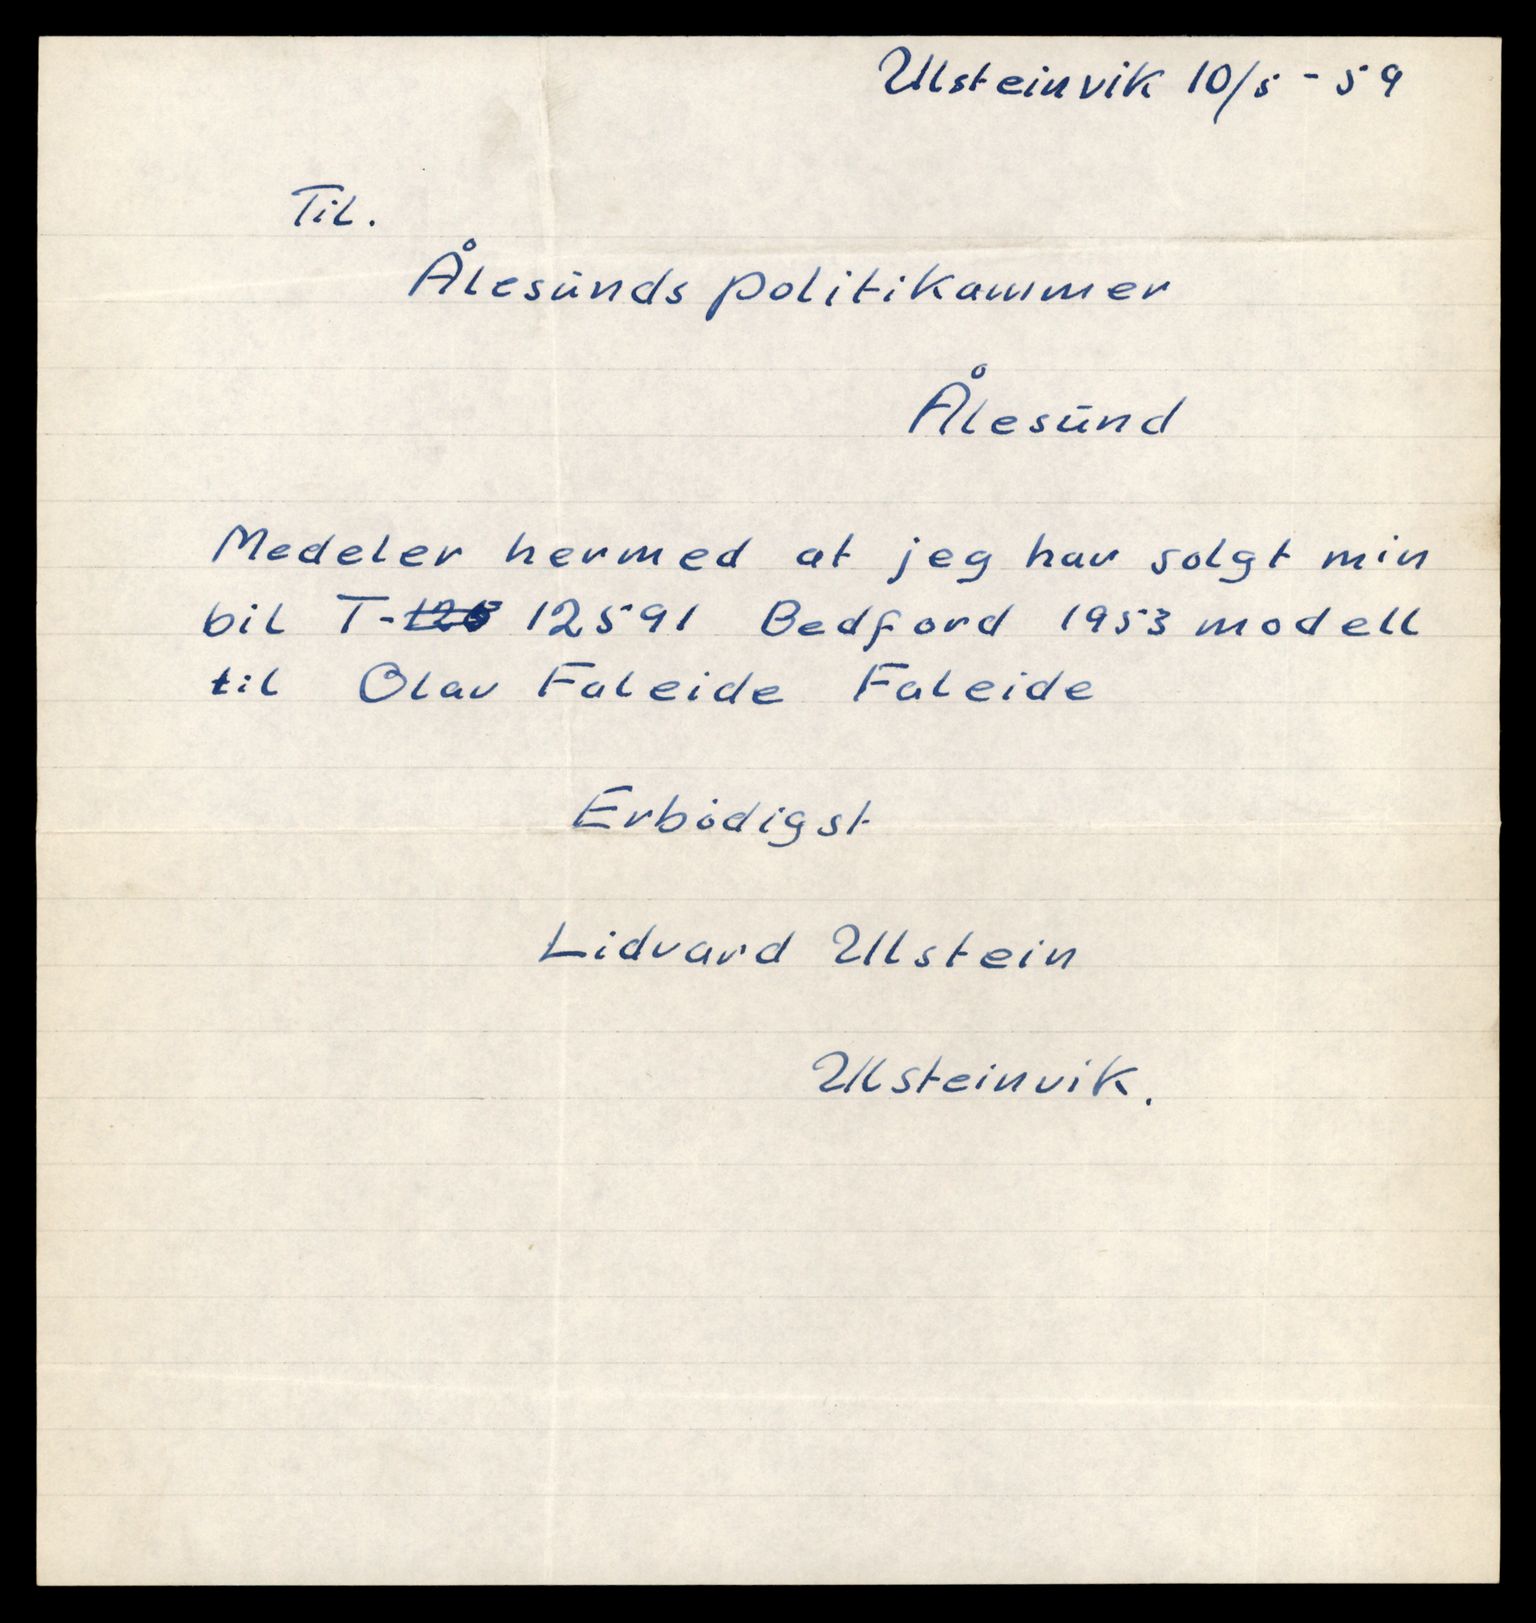 Ulsteinvik 10/5 - 59
Til.
Ålesunds politikammer
Ålesund
Medeler hermed at jeg har solgt min
bil T- 12591 Bedford 1953 modell
til Olav Faleide Faleide
Erbødigst
Lidvard Ulstein
Ulsteinvik.